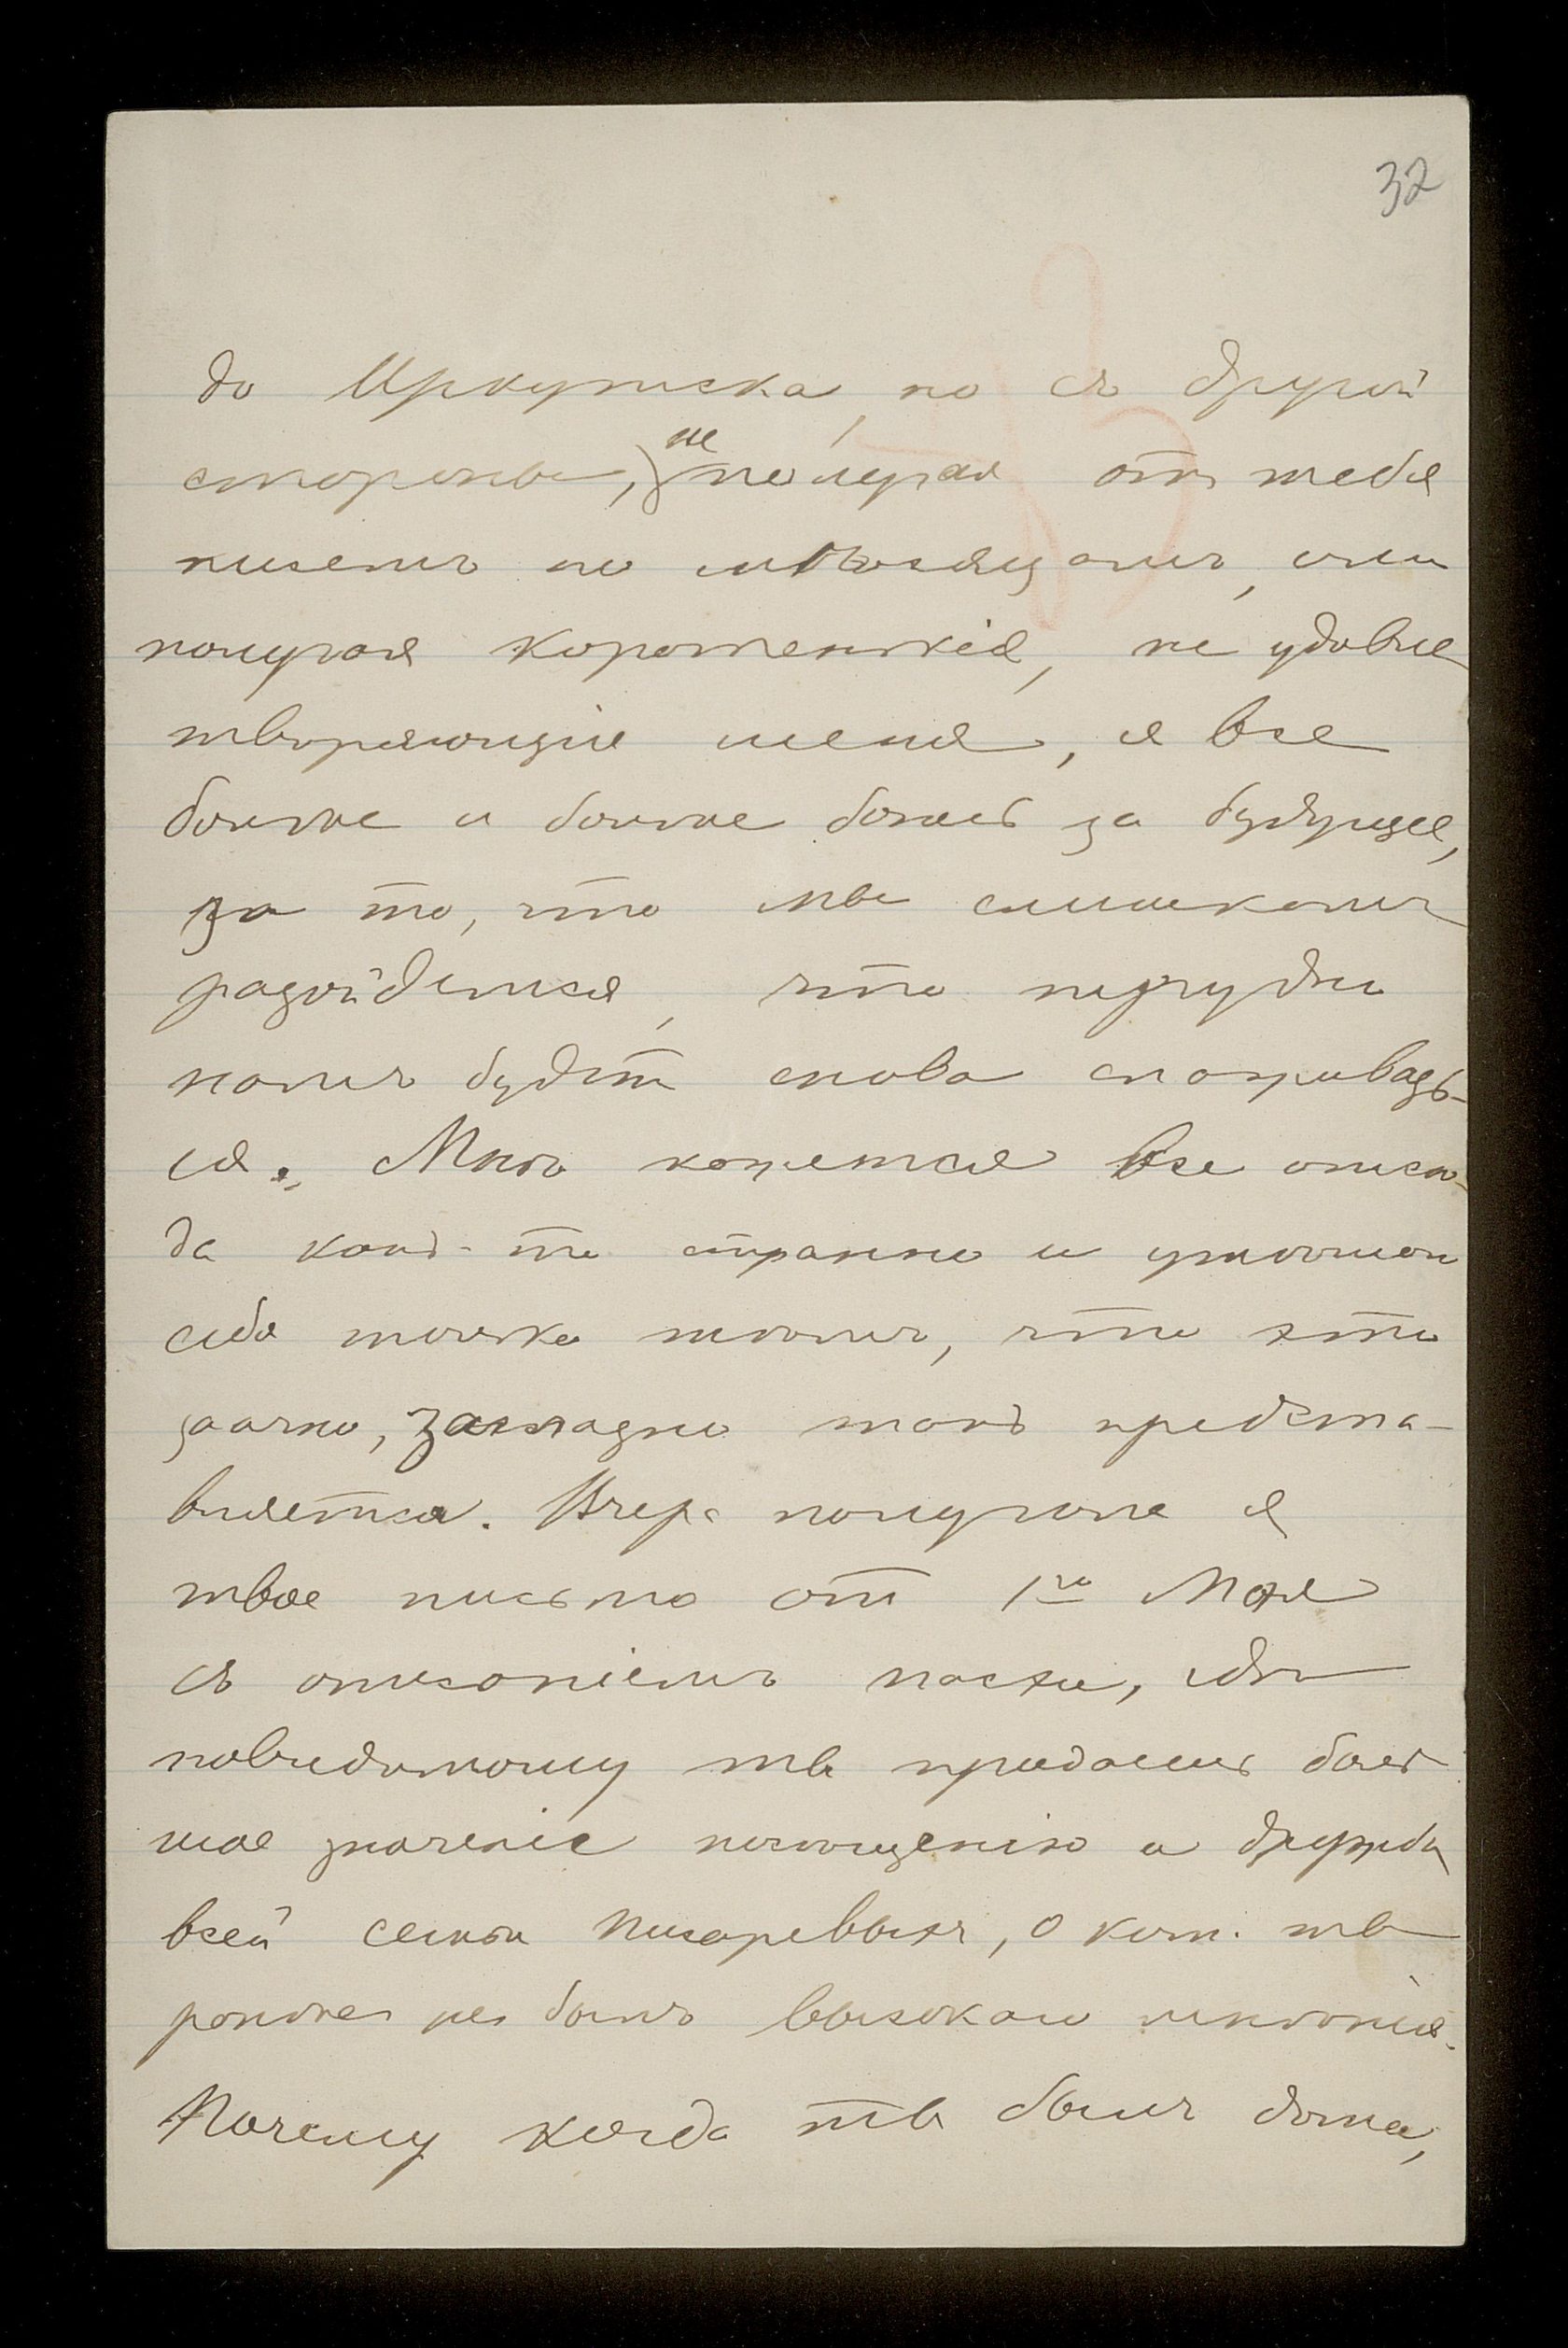 32
до Иркутска, но съ другой
стороны, не получая отъ тебя
писемъ по мѣсяцамъ, или
получая коротенькія, не удовле
творяющіе меня, я все
больше и больше боюсь за будущее,
за то, что мы слишкомъ
разойдемся, что трудно
намъ будетъ снова
ся. Мнѣ кажется все отсю-
да какъ-то странно и утѣшаю
себя только тѣмъ, что это
заочно, заглазно такъ предста-
вляется. Вчера получила я
твое письмо отъ 1го Мая
съ описаніемъ пасхи, гдѣ
повидимому ты придаешь боль
шое значеніе посѣщенію и дружбѣ
всей семьи Писаревыхъ, о кот. ты
раньше не былъ высокаго мнѣнія.
Почему когда ты былъ дома,